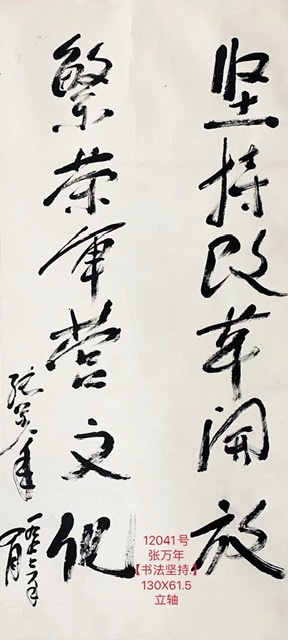 坚持改革開放
繁荣军营文化
张万年
12041号
张万年
【书法坚持.】
130X61.5
立轴